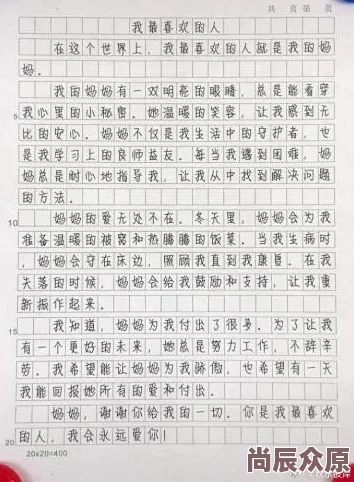 共 页 第 页
我最喜欢的人
在这个世界上，我最喜欢的人就是我的妈
妈.
我的妈妈有一双明亮的眼睛，总是能看穿
5 我心里的小秘密.她温暖的笑容，让我感到无
比的安心.妈妈不仅是我生活中的守护者，也
是我学习上的良师益友.每当我遇到困难，妈
妈总是耐心地指导我，让我从中找到解决问题
的方法.
10 妈妈的爱无处不在.冬天里，妈妈会为我
准备温暖的被窝和热腾腾的饭菜.当我生病时
，妈妈会守在床边，照顾我直到我康复.在我
失落的时候，妈妈会给我鼓励和支持，让我重
新振作起来.
15 我知道，妈妈为我付出了很多.为了让我
有一个更好的未来，她总是努力工作，不辞辛
劳.我希望能让妈妈为我骄傲，也希望有一天
我能回报她所有的爱和付出.
妈妈，谢谢你给我的一切.你是我最喜欢
20 的人，我会永远爱你！
20x20=400
尚辰众原